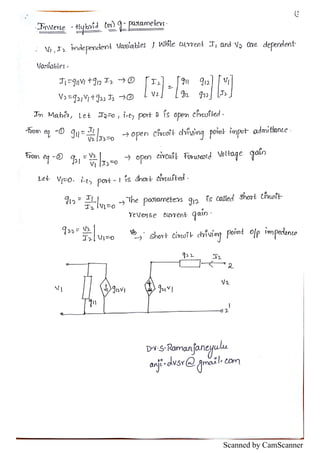 Inverse - Hybrid (or) g - parameters -
V1, I2 independent Variables ; While current I1 and V2 are dependent
Variables.
I1 = g11 V1 + g12 I2 → ① [I1] = [g11 g12] [V1]
V2 = g21 V1 + g22 I2 → ② [V2] [g21 g22] [I2]
In Matrix, Let I2=0, i.e, port 2 is open circuited.
from eq - ① g11 = I1/V1 | I2=0 → open circuit driving point input admittance.
From eq - ② g21 = V2/V1 | I2=0 → open circuit Forward Voltage gain
Let V1=0. i.e, port - 1 is short circuited.
g12 = I1/I2 | V1=0 → The parameters g12 is called short circuit
reverse current gain.
g22 = V2/I2 | V1=0 → short circuit driving point o/p impedance
g22 I2
2
V1 g11 g12V1 g21V1 V2
2'
Dr. S. Ramanjaneyulu
anji.dvsr@gmail.com
Scanned by CamScanner